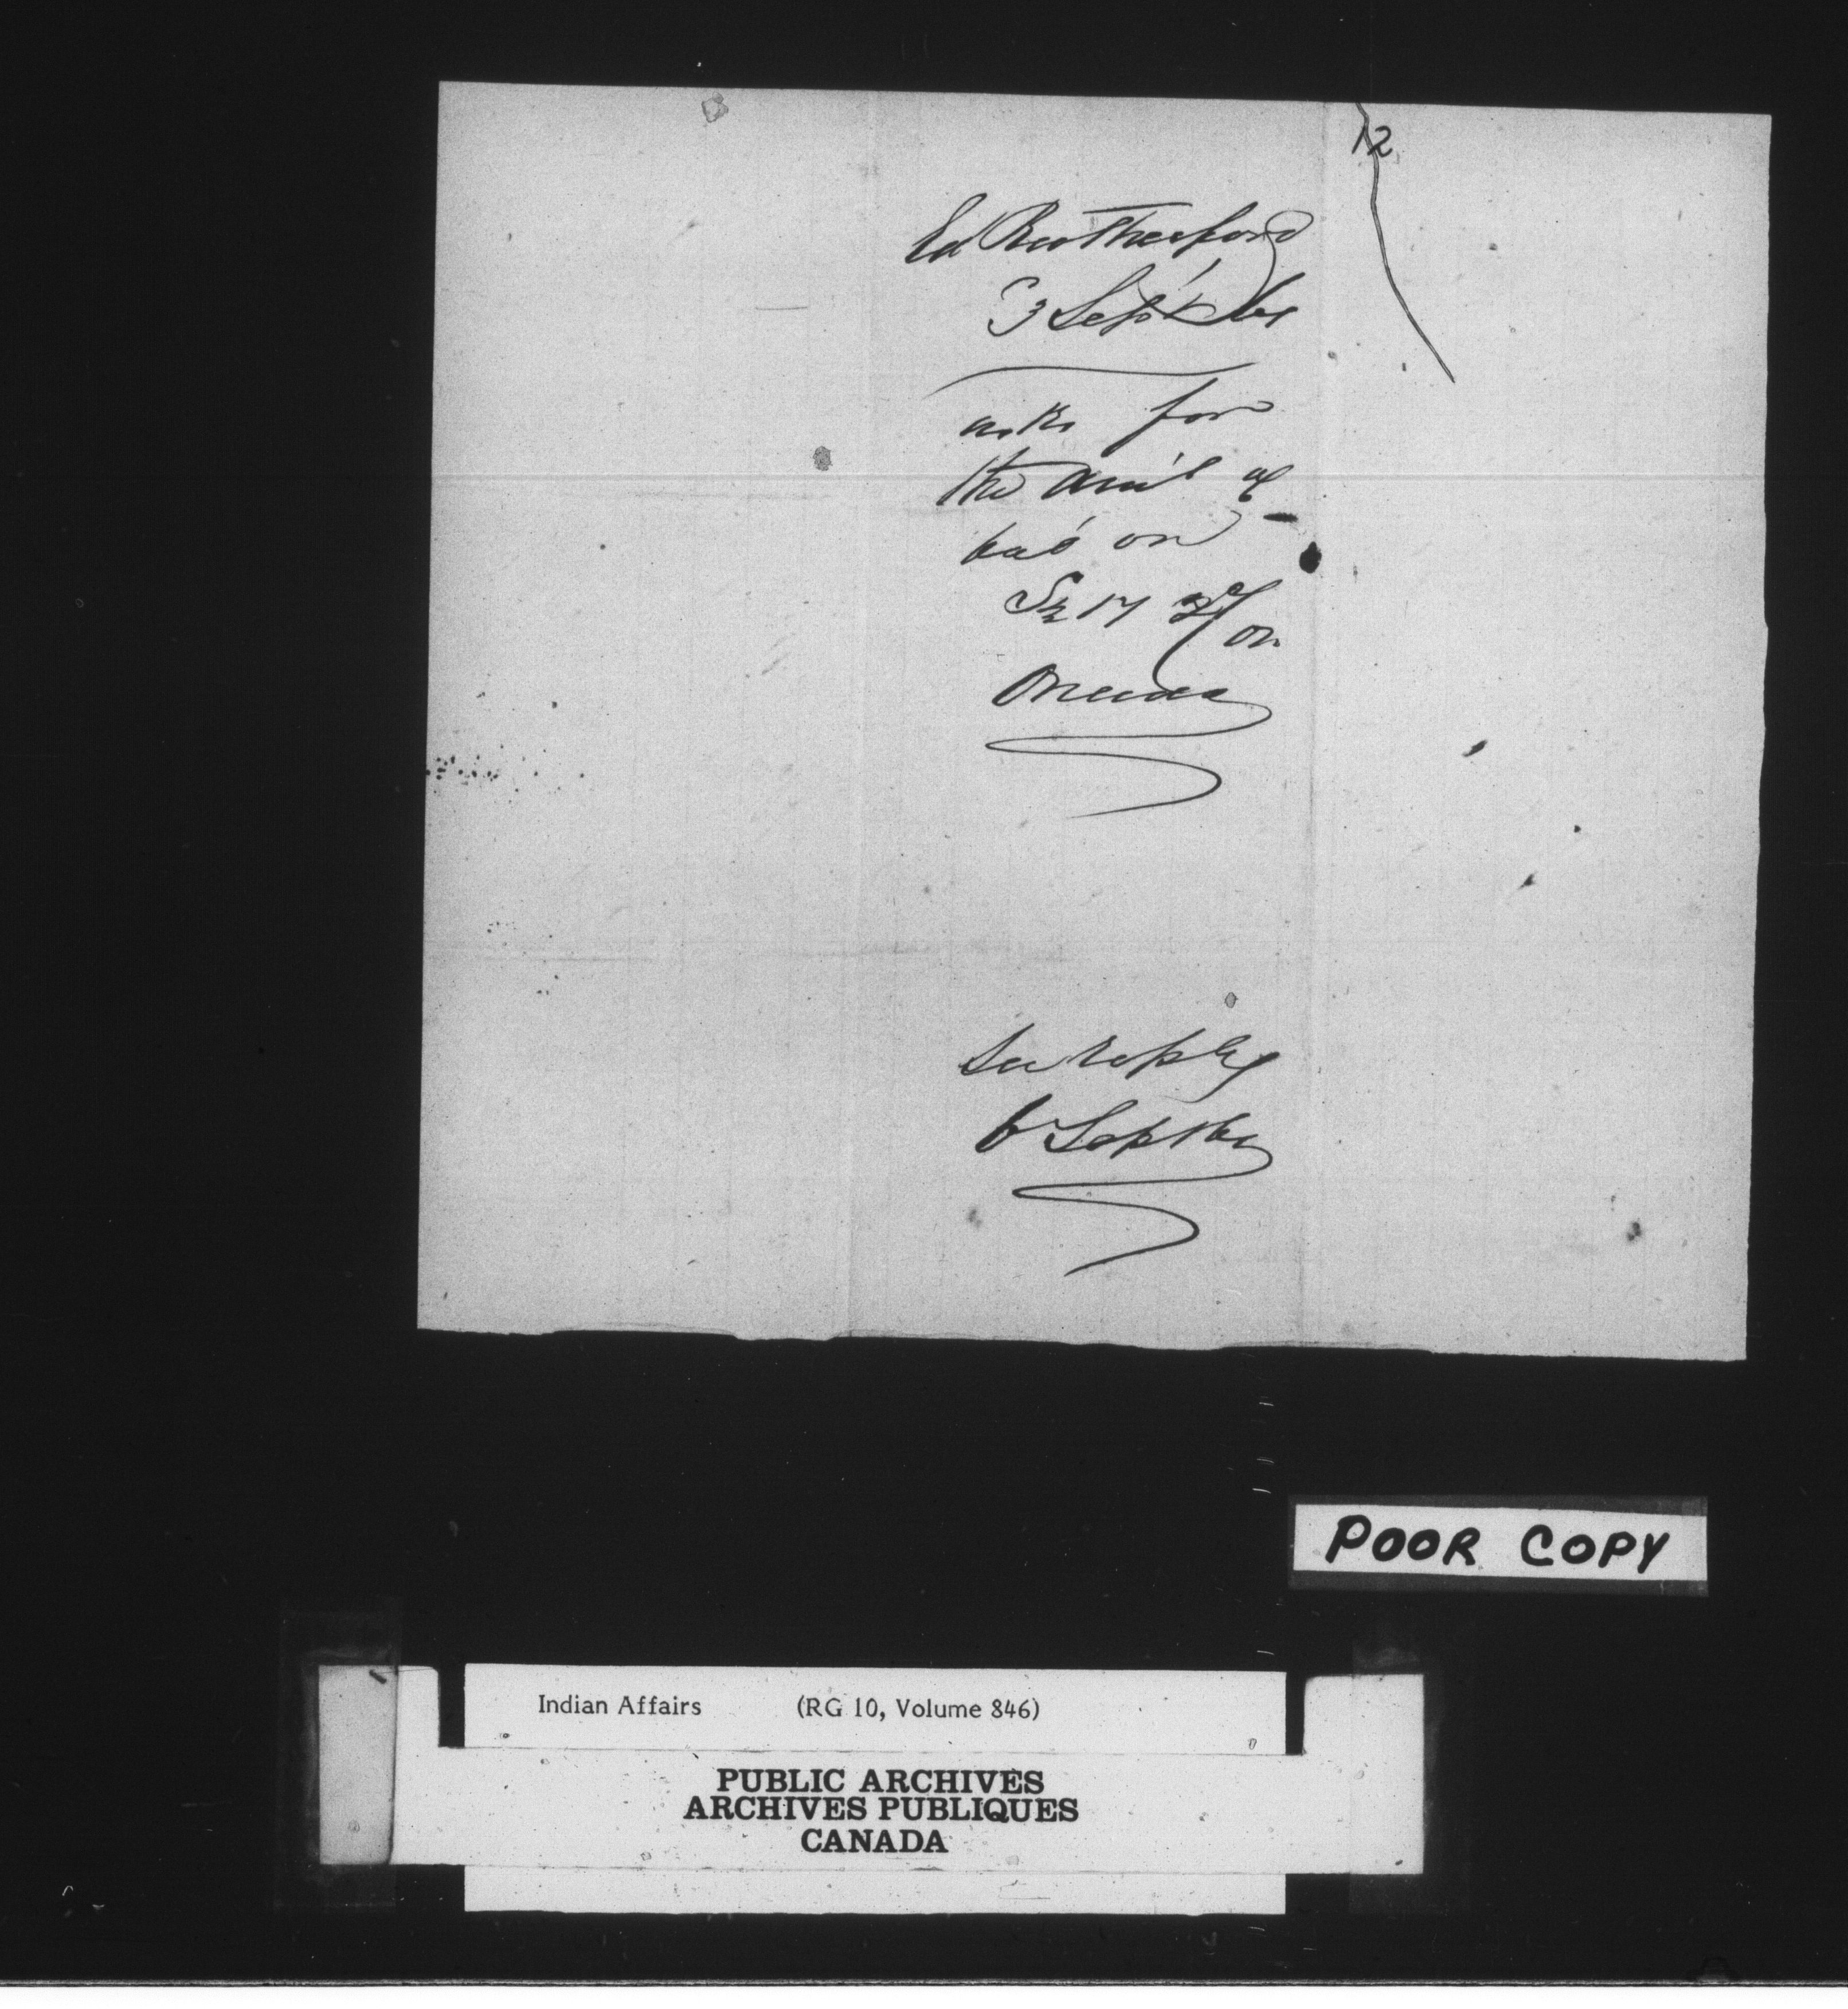 12
Ed Rutherford
3 Sept
asks for
the am't of
bal on
S½ 17 2/ on
Oneida
See reply
6 Sept
POOR COPY
Indian Affairs (RG 10, Volume 846)
PUBLIC ARCHIVES
ARCHIVES PUBLIQUES
CANADA